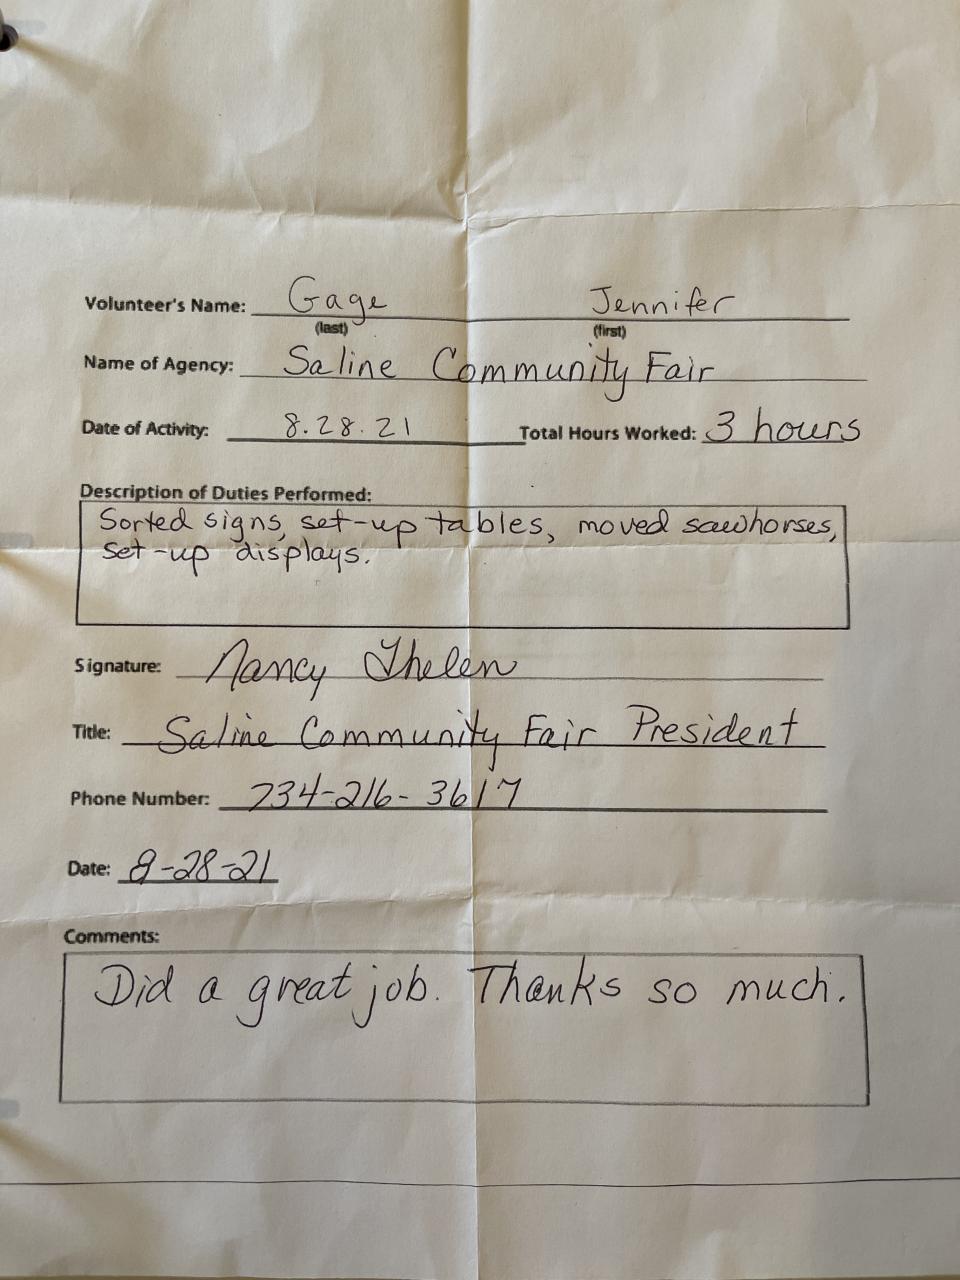 Volunteer's Name: Gage Jennifer
(last) (first)
Name of Agency: Saline Community Fair
Date of Activity: 8.28.21 Total Hours Worked: 3 hours
Description of Duties Performed:
Sorted signs, set-up tables, moved sawhorses,
set-up displays.
Signature: Nancy Thelen
Title: Saline Community Fair President
Phone Number: 734-216-3617
Date: 8-28-21
Comments:
Did a great job. Thanks so much.